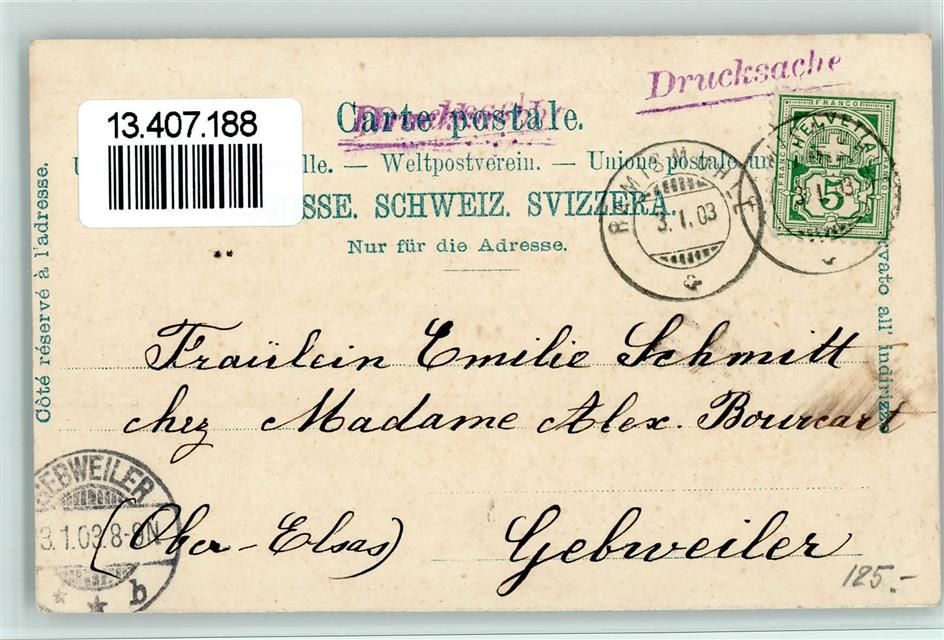 Drucksache
13.407.188
Drucksache
Carte postale.
lle. — Weltpostverein. — Unione postale un
SSE. SCHWEIZ. SVIZZERA
Nur für die Adresse.
Côté réservé à l'adresse.
rvato all' indirizzo
FRANCO
HELVETIA
5
3.I.03
3.I.03
Fräulein Emilie Schmitt
chez Madame Alex. Bourcart
(Ober-Elsas) Gebweiler
GEBWEILER
3.1.03.8-9N
b
125.-